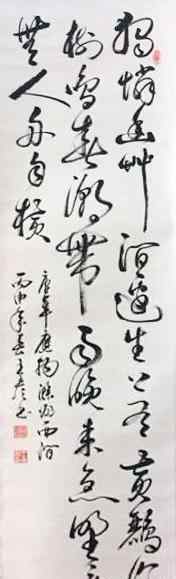 獨憐幽艸澗邊生上有黃鸝深
樹鳴春潮帶雨晚來急野渡
無人舟自橫
唐韋應物滁州西澗
丙申年春王